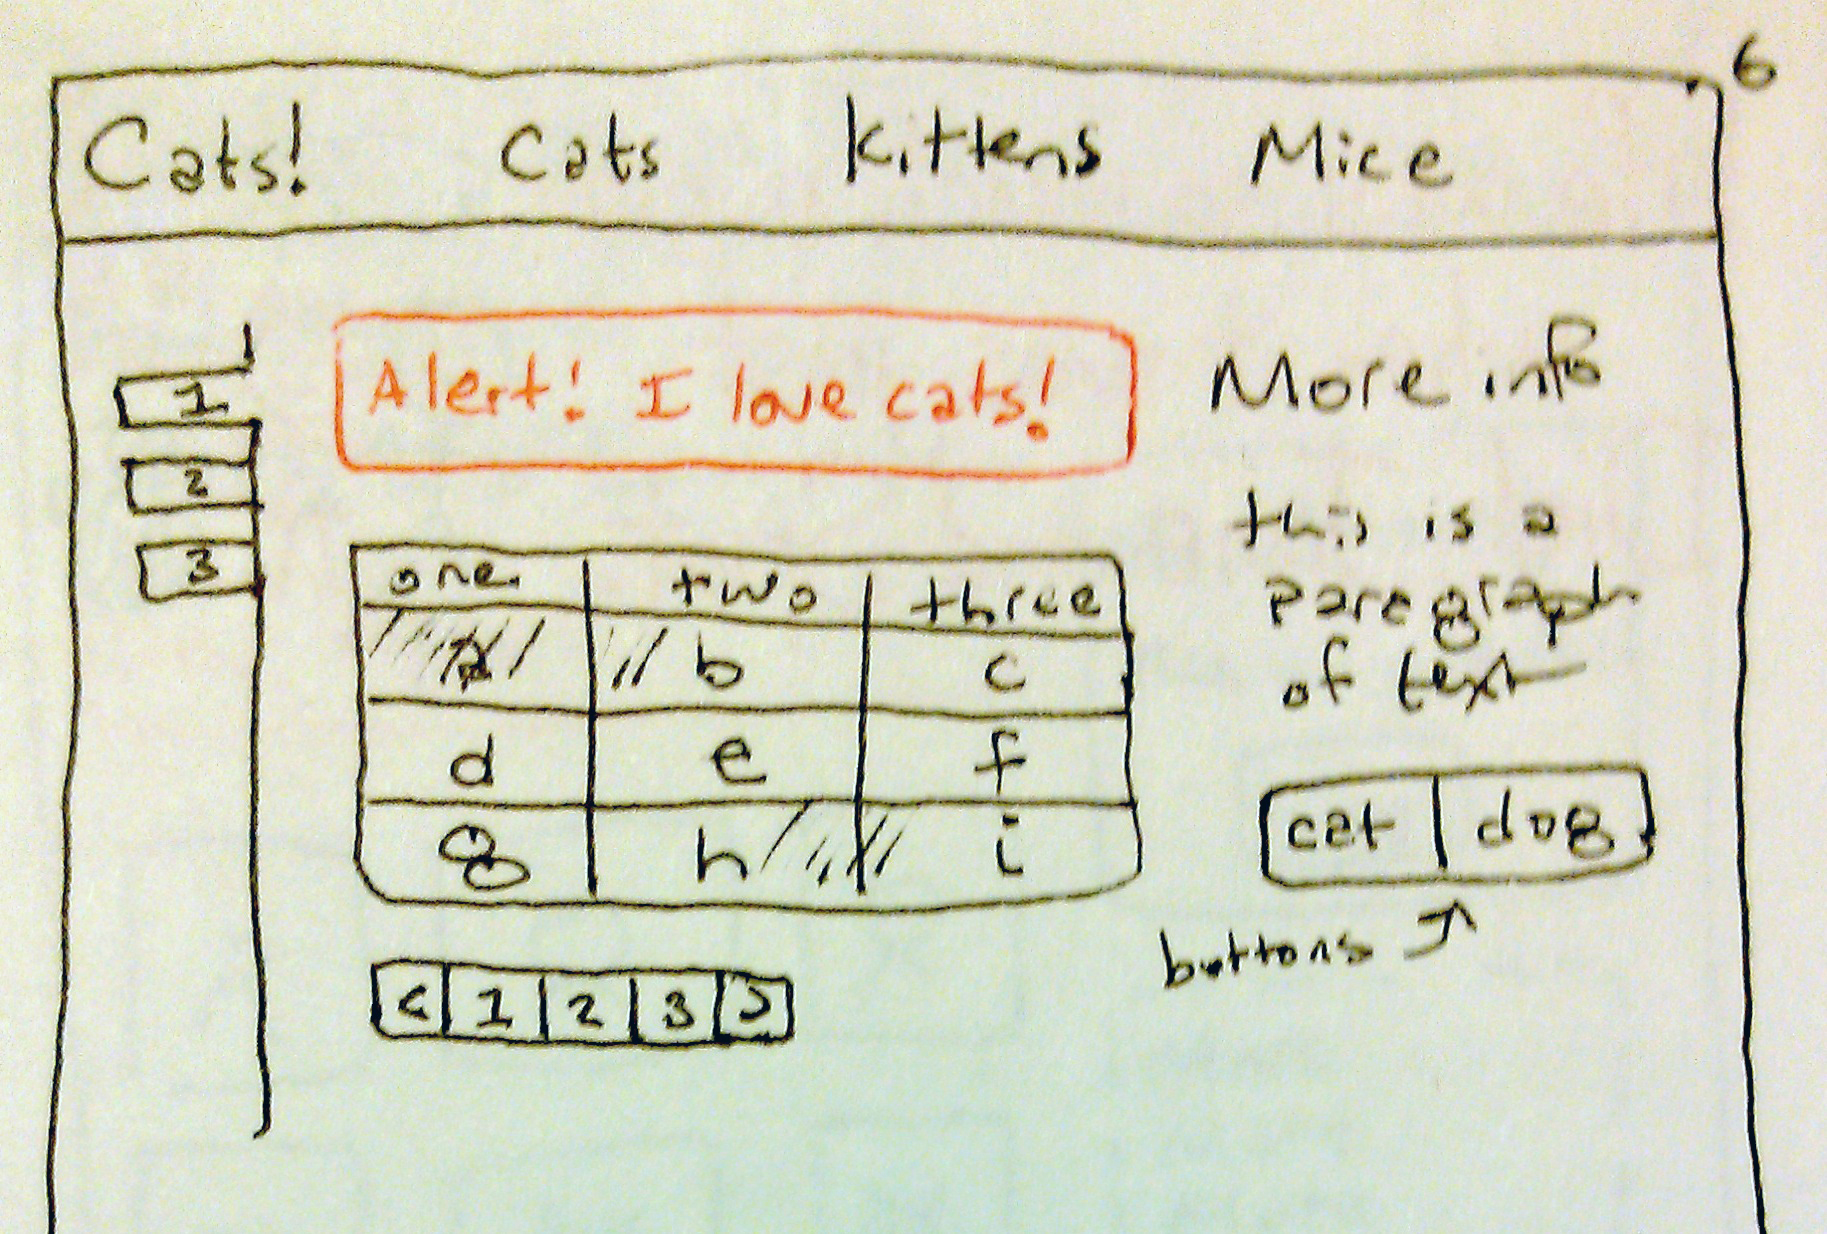 6
Cats! Cats Kittens Mice
1
2
3
Alert! I love cats!
one two three
a b c
d e f
g h i
< 1 2 3 >
More info
this is a
paragraph
of text
cat dog
buttons